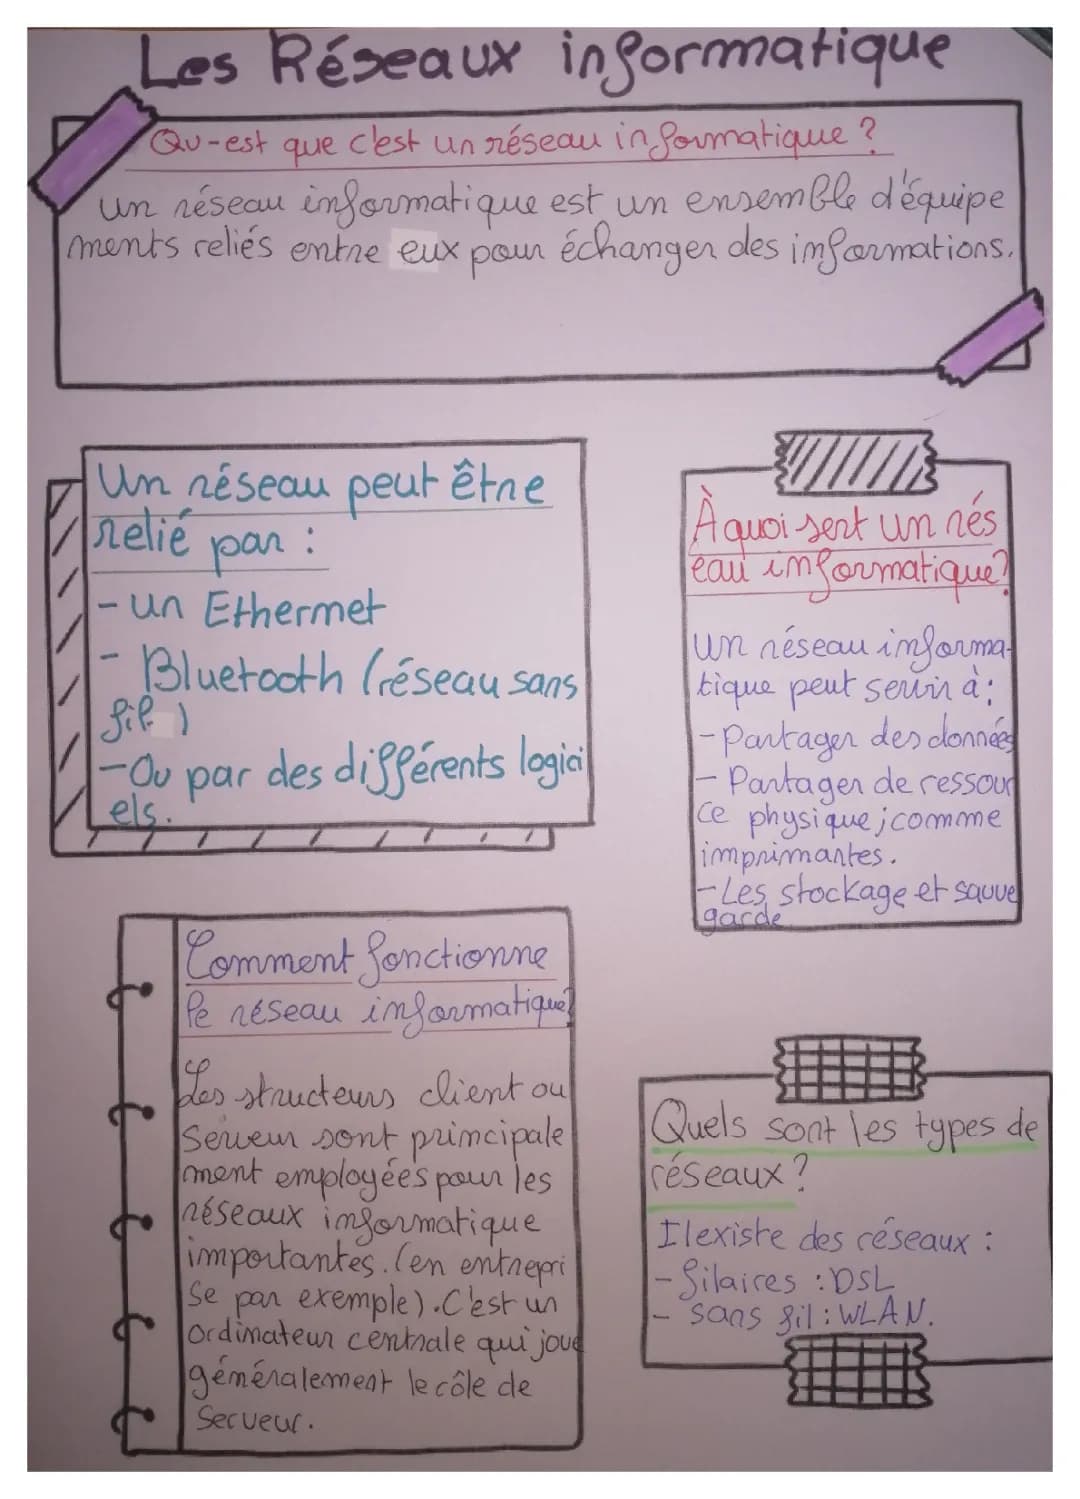 Les Réseaux informatique
Qu-est que c'est un réseau informatique ?
un réseau informatique est un ensemble d'équipe
ments reliés entre eux pour échanger des informations.
Un réseau peut être
relié par :
- un Ethermet
- Bluetooth (réseau sans
fil )
- Ou par des différents logici
els.
À quoi sert un rés
eau informatique?
un réseau informa-
tique peut servir à :
- Partager des données
- Partager de ressour
ce physique ; comme
imprimantes.
- Les stockage et sauve
garde
Comment fonctionne
le réseau informatique?
Les structeurs client ou
serveur sont principale
ment employées pour les
réseaux informatique
importantes. (en entrepri
se par exemple). C'est un
ordinateur centrale qui joue
généralement le côle de
serveur.
Quels sont les types de
réseaux ?
Il existe des réseaux :
- filaires : DSL
- sans fil : WLAN.